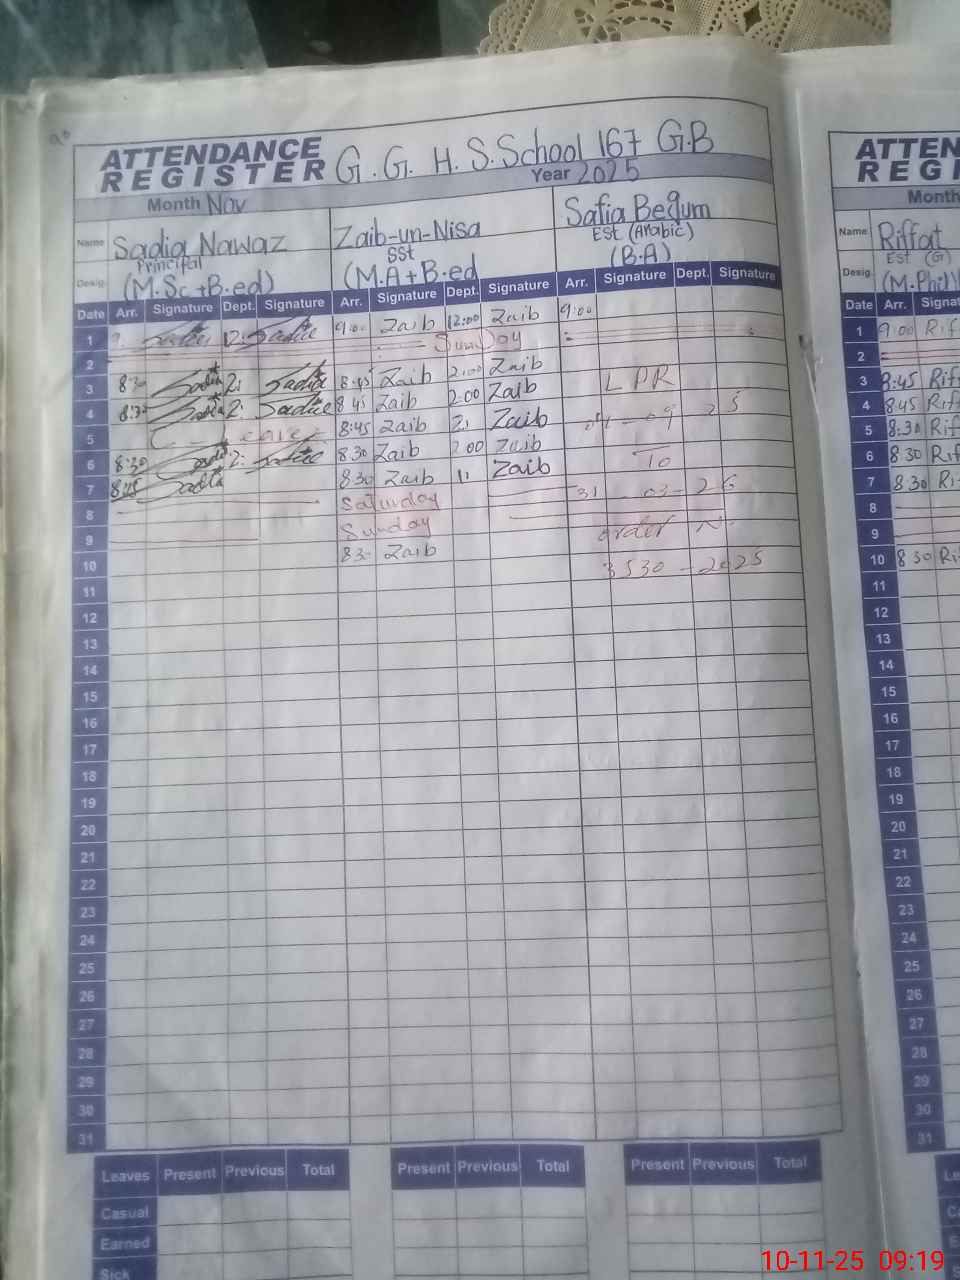 ATTENDANCE REGISTER G.G.H.S.School 167 G.B
Month Nov Year 2025
Name Sadia Nawaz Zaib-un-Nisa Safia Begum
Desig. Principal (M.Sc+B.ed) SST (M.A+B.ed EST (Arabic) (B.A)
Date Arr. Signature Dept. Signature Arr. Signature Dept. Signature Arr. Signature Dept. Signature
1 9. Sadia 12: Sadia 9:00 Zaib 12:00 Zaib 9:00
2 Sunday
3 8:30 Sadia 2: Sadia 8:45 Zaib 2:00 Zaib LPR
4 8:30 Sadia 2: Sadia 8 45 Zaib 2:00 Zaib
5 Leave 8:45 Zaib 2: Zaib
6 8:30 Sadia 2: Sadia 8 30 Zaib 2 00 Zaib
7 8:45 Sadia 8 30 Zaib 11 Zaib
8 Saturday 31 03 - 26
9 Sunday order N.
10 8 30 Zaib 3530 - 2025
11
12
13
14
15
16
17
18
19
20
21
22
23
24
25
26
27
28
29
30
31
Leaves Present Previous Total Present Previous Total Present Previous Total
Casual
Earned
Sick
ATTEN
REGI
Month
Name Riffat
Desig. EST (G) (M.Phil)
Date Arr. Signat
1 9:00 Rif
2
3 8:45 Rif
4 8 45 Rif
5 8:30 Rif
6 8 30 Rif
7 8 30 Ri
8
9
10 8 30 Rif
11
12
13
14
15
16
17
18
19
20
21
22
23
24
25
26
27
28
29
30
31
10-11-25 09:19